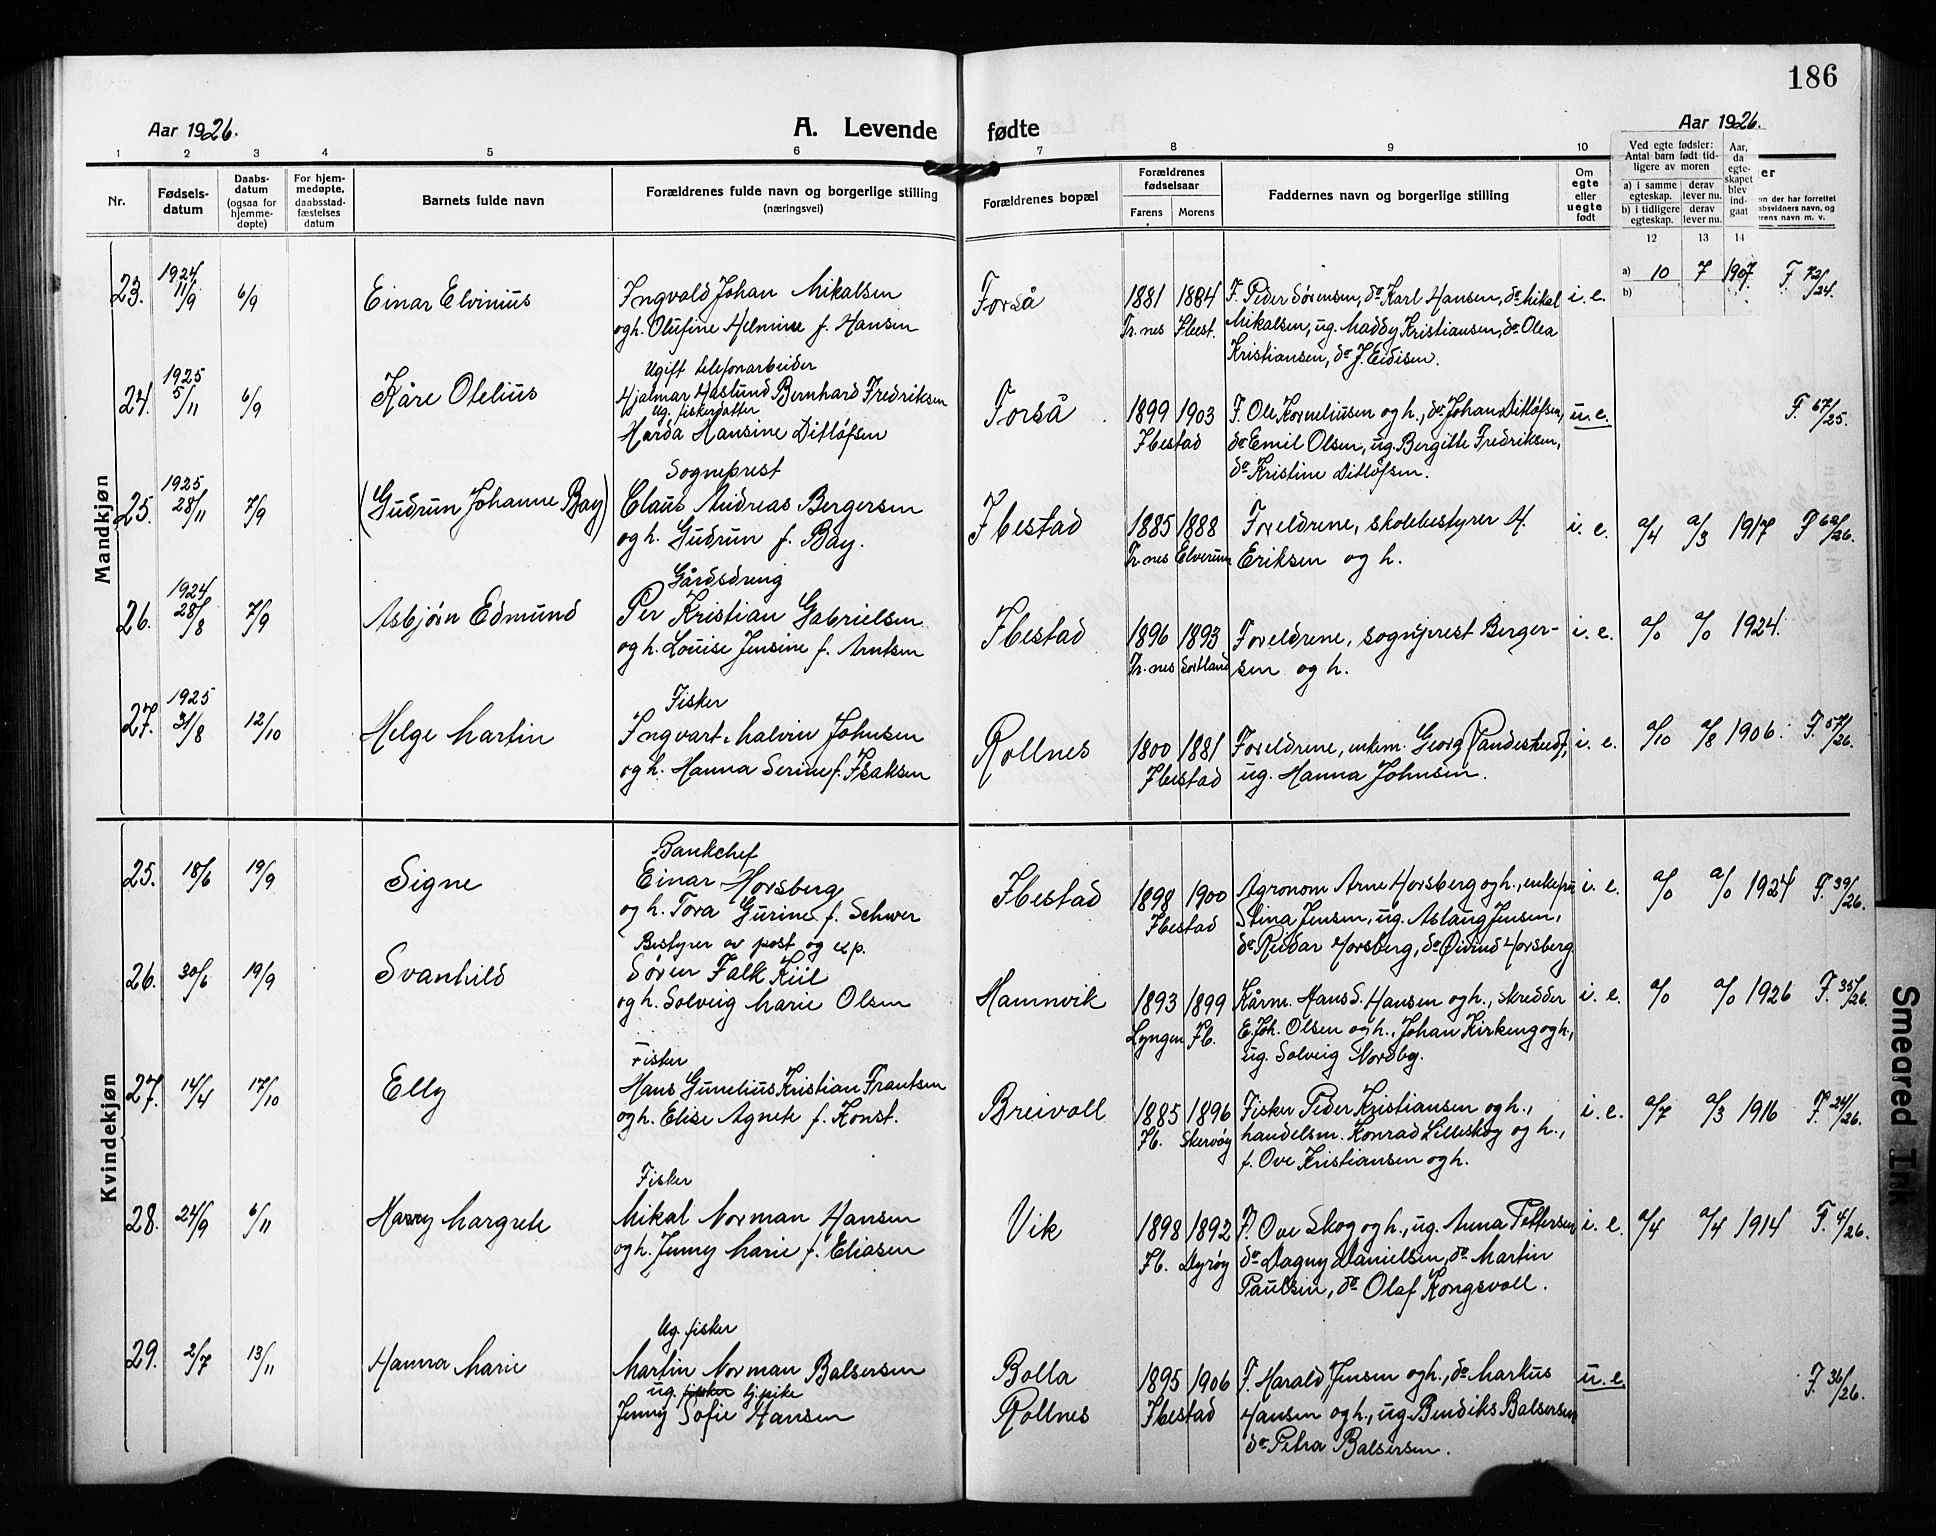 186
Aar 1926.
A. Levende fødte
Aar 1926.
1 2 3 4 5 6 7 8 9 10
Nr.
Fødsels-
datum
Daabs-
datum
(ogsaa for
hjemme-
døpte)
For hjem-
medøpte,
daabsstad-
fæstelses
datum
Barnets fulde navn
Forældrenes fulde navn og borgerlige stilling
(næringsvei)
Forældrenes bopæl
Forældrenes
fødselsaar
Farens Morens
Faddernes navn og borgerlige stilling
Om
egte
eller
uegte
født
Ved egte fødsler:
Antal barn født tid-
ligere av moren
a) i samme
egteskap.
derav
lever nu.
b) i tidligere
egteskap.
derav
lever nu.
Aar,
da
egte-
skapet
blev
ind-
gaat
12 13 14
er
n der har forrettet
absvidners navn, og
rens navn m. v.
Mandkjøn
23. 1924 11/9 6/9 Einar Elvinius
Ingvald Johan Mikalsen
og h. Olufine Helmine f. Hansen
Forså
1881 1884
Tr.nes Ibest.
F. Peder Sørensen, do Karl Hansen, do Mikal
Mikalsen, ug. Madby Kristiansen, do Olea
Kristiansen, do J. Eidisen.
i. e. a) 10 7 1907 F. 72/24.
b)
24. 1925 5/11 6/9 Kåre Otelius
Ugift telefonarbeider
Hjalmar Haslund Bernhard Fredriksen
ug. fiskerdatter
Harda Hansine Ditlofsen
Forså
1899 1903
Ibestad
F. Ole Korneliusen og h., do Johan Ditlofsen,
do Emil Olsen, ug. Bergitte Fredriksen,
do Kristine Ditlofsen.
u. e. F. 67/25.
25. 1925 28/11 7/9 (Gudrun Johanne Bay)
Sogneprest
Claus Andreas Bergersen
og h. Gudrun f. Bay.
Ibestad
1885 1888
Tr.nes Elverum
Foreldrene, skolebestyrer H.
Eriksen og h.
i. e. a/4 a/3 1917 F. 62/26.
26. 1924 28/8 7/9 Asbjørn Edmund
Gårdsdreng
Per Kristian Gabrielsen
og h. Louise Jensine f. Arntsen
Ibestad
1896 1893
Tr.nes Sortland
Foreldrene, sogneprest Berger-
sen og h.
i. e. a/0 a/0 1924.
27. 1925 31/8 12/10 Helge Martin
Fisker
Ingvart Malvin Johnsen
og h. Hanna Serine f. Isaksen
Rollnes
1800 1881
Ibestad
Foreldrene, enkem. Georg
ug. Hanna Johnsen.
i. e. a/10 a/8 1906. F. 57/26.
Kvindekjøn
25. 18/6 19/9 Signe
Bankchef
Einar Horsberg
og h. Tora Gurine f. Schwer
Ibestad
1898 1900
Ibestad
Agronom Arne Horsberg og h., enkefru
Stina Jensen, ug. Aslaug Jensen,
do Reidar Horsberg, do Øivind Horsberg
i. e. a/0 a/0 1924 F. 39/26.
26. 30/6 19/9 Svanhild
Bestyrer av post og exp.
Søren Falk Kiil
og h. Solveig Marie Olsen
Hamnvik
1893 1899
Lyngen Ib.
Kårm. Hans S. Hansen og h., skredder
E. Joh. Olsen og h., Johan Kirkeng og h,
ug. Solveig Nordby.
i. e. a/0 a/0 1926 F. 35/26.
27. 14/4 17/10 Elly
Fisker
Hans Gunelius Kristian Frantsen
og h. Elise Agnete f. Konst.
Breivoll
1885 1896
Ib. Skervøy
Fisker Peder Kristiansen og h.,
handelsm. Konrad Lilleskog og h.,
f. Ove Kristiansen og h.
i. e. a/7 a/3 1916 F. 24/26.
28. 24/9 6/11 Harry Margrete
Fisker
Mikal Norman Hansen
og h. Jenny Marie f. Eliasen
Vik
1898 1892
Ib. Dyrøy
F. Ove Skog og h., ug. Anna Pettersen
do Dagny Danielsen, do Martin
Paulsen, do Olaf Kongsvoll.
i. e. a/4 a/4 1914 F. 4/26.
29. 2/7 13/11 Hanna Marie
Ug. fisker
Martin Norman Balsersen
ug. fisker tj.pike
Jenny Sofie Hansen
Bolla
Rollnes
1895 1906
Ibestad
F. Harald Jensen og h., do Markus
Hansen og h., ug. Bendiks Balsersen
do Petra Balsersen.
u. e. F. 36/26.
Smeared Ink